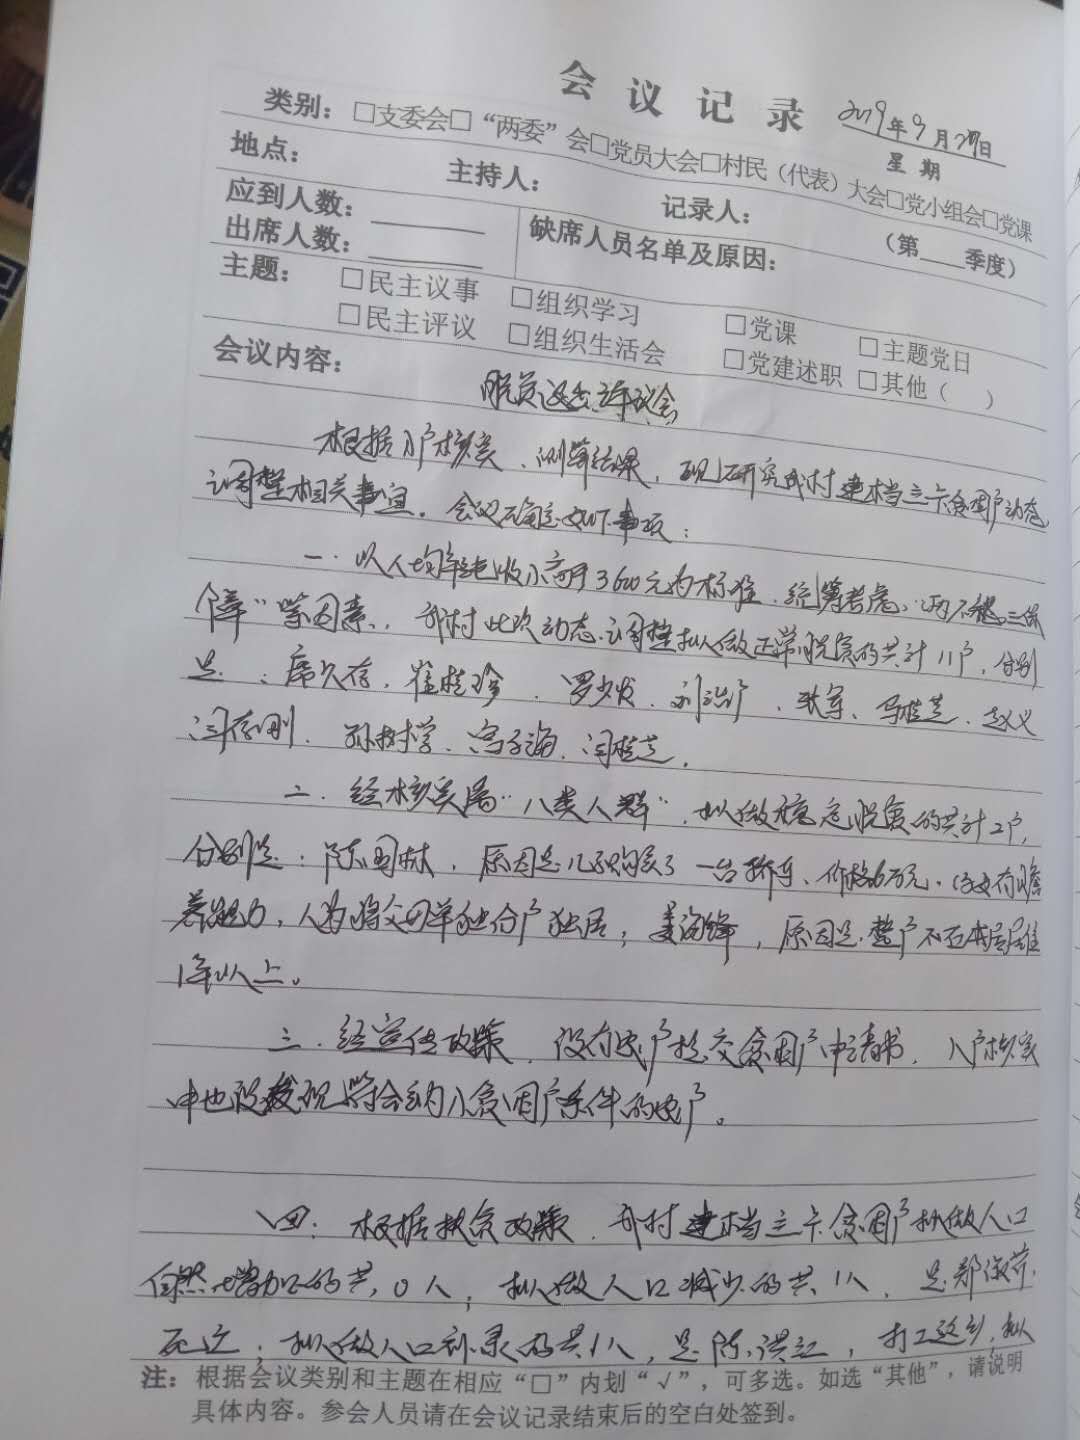 会 议 记 录
2019年9月27日
星 期
类别：□支委会□“两委”会□党员大会□村民（代表）大会□党小组会□党课
（第____季度）
地点：　主持人：　记录人：
应到人数：______　缺席人员名单及原因：
出席人数：______
主题：　□民主议事　□组织学习　□党课　□主题党日
□民主评议　□组织生活会　□党建述职　□其他（　）
会议内容：
脱贫退出评议会
根据入户核实、测算结果，现研究我村建档立卡贫困户动态
调整相关事宜。会议确定如下事项：
一、以人均年纯收入高于3600元为标准，统筹考虑“两不愁三保
障”等因素，我村此次动态调整拟做正常脱贫的共计11户，分别
是：席久存、崔桂珍、罗少发、刘、张军、马桂芝、赵义
闫存刚、孙树学、宫子海、闫桂芝。
二、经核实属“八类人群”，拟做稳定脱贫的共计2户，
分别是：陈国林，原因是儿子购买了一台轿车、价格6万元，有赡
养能力，人为将父母单独分户独居；姜海锋，原因是整户不在本居住
1年以上。
三、经宣传政策，没有农户提交贫困户申请书，入户核实
中也没发现符合纳入贫困户条件的农户。
四、根据扶贫政策，我村建档立卡贫困户拟做人口
自然增加的共0人；拟做人口减少的共1人，是郑淑芹，
死亡；拟做人口补录的共1人，是陈洪江，打工返乡，拟
注：根据会议类别和主题在相应“□”内划“√”，可多选。如选“其他”，请说明
具体内容。参会人员请在会议记录结束后的空白处签到。